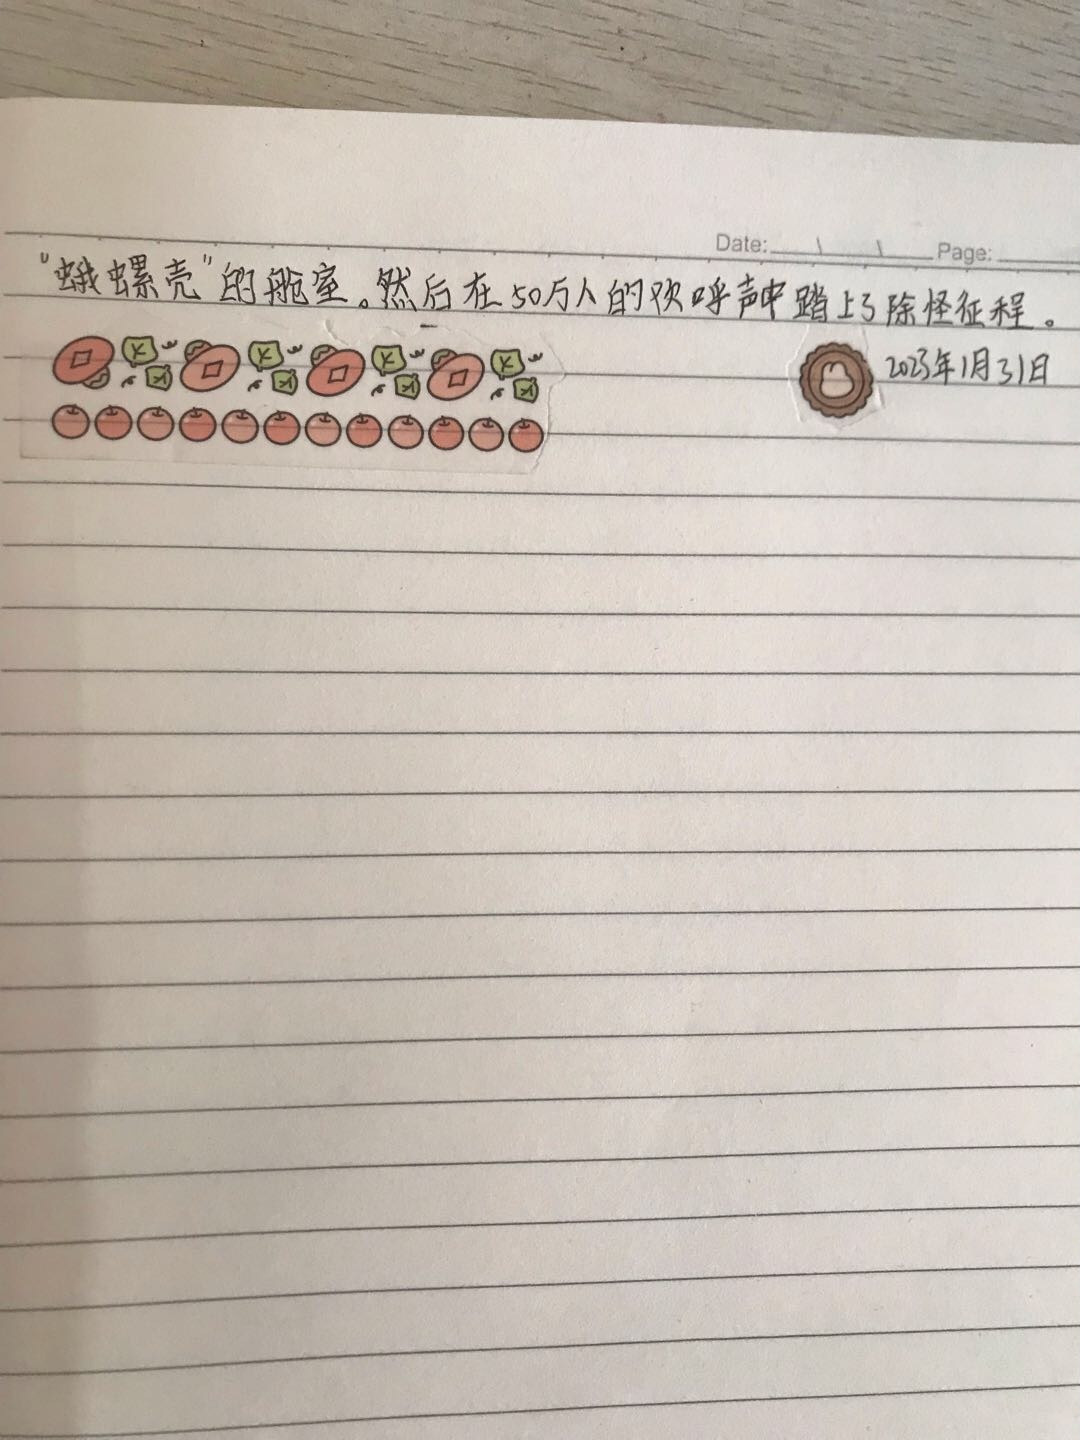 Date: \ \ Page:
"蛾螺壳"的舱室。然后在50万人的欢呼声中踏上了除怪征程。
2023年1月31日